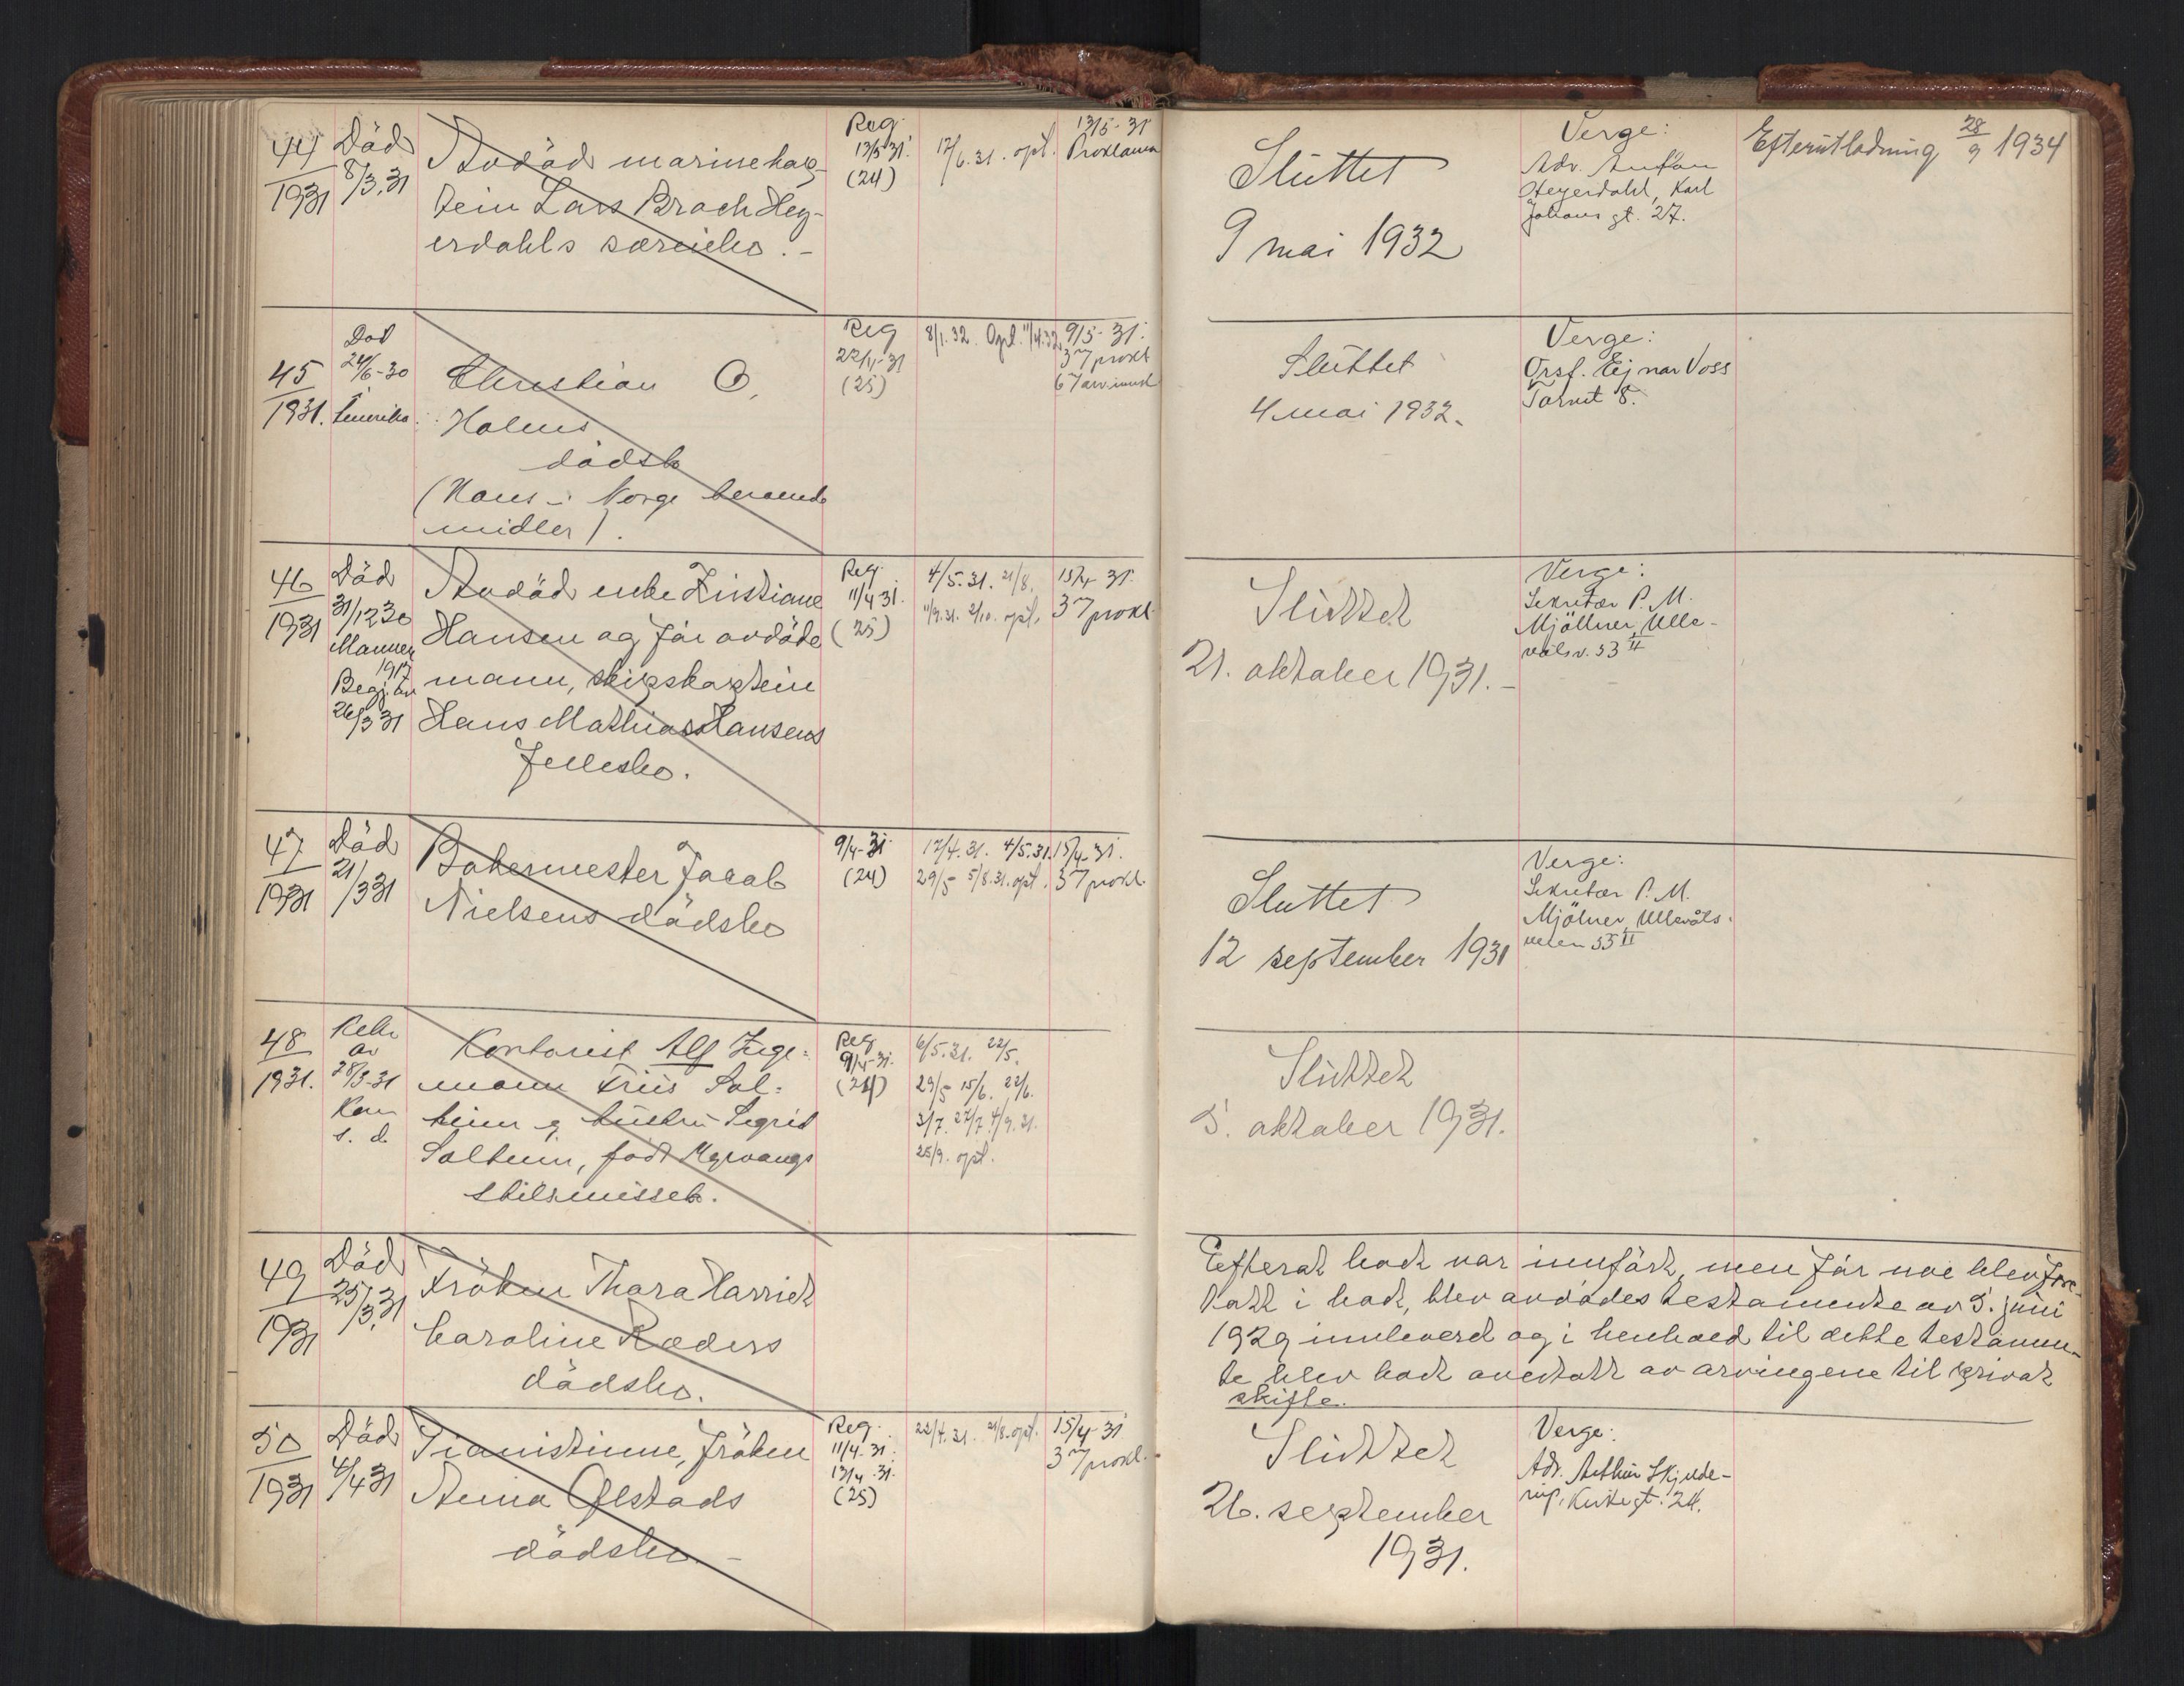 44
1931
Död
8/3.31
Avdöd marinekap-
tein Lars Broch Hey-
erdahls særeiebo.-
Reg.
13/5 31.
(24)
17/6.31. opt.
13/5-31
Proklama
Sluttet
9 mai 1932
Verge:
Adv. Anton
Heyerdahl, Karl
Johans gt. 27.
Efterutlodning 28/9 1934
45
1931.
Död
24/6-30
i
Amerika.
Christian O.
Holms
dödsbo
(Hans i Norge beroende
midler).
Reg
22/4-31
(25)
8/1.32. Opt. 11/4.32.
9/5-31.
3 m prokl
6 m arv. innk
Sluttet
4 mai 1932.
Verge:
Orsf. Ejnar Voss
Torvet 8.
46
1931
Död
31/12 30
Mannen
1917
Begj. av
26/3 31
Avdöd enke Kristiane
Hansen og før avdöde
mann, skipskaptein
Hans Mathias Hansens
fellesbo.
Reg.
11/4 31.
(25)
4/5.31. 21/8.
11/9.31. 2/10. opt.
15/4-31.
3 m prokl.
Sluttet
21. oktober 1931.-
Verge:
Sekretær P. M.
Mjöllner, Ulle-
vålsv. 53 II
47
1931
Död
21/3 31
Bakermester Jacob
Nielsens dödsbo
9/4-31.
(24)
17/4.31. 4/5.31.
29/5 5/8.31. opt.
15/4-31.
3 m prokl.
Sluttet
12 september 1931
Verge:
Sekretær P. M.
Mjölner, Ullevåls-
veien 53 II
48
1931.
Rekv
av
28/3-31
Kom
s. d.
Kontorist Alf Inge-
mann Friis Sol-
heim og hustru Sigrid
Solheim, född Myrvangs
skilsmissebo.
Reg
9/4-31.
(24)
6/5.31. 22/5.
29/5 15/6. 22/6.
3/7. 27/7. 4/9.31.
25/9. opt.
Sluttet
5. oktober 1931.
49
1931
Död
25/3.31
Fröken Thora Harriet
Caroline Ræders
dödsbo.
Efterat boet var innfört, men før noe blev fore-
tatt i boet, blev avdödes testamente av 5. juni
1929 innlevert og i henhold til dette testamen-
te blev boet overtatt av arvingene til privat
skifte.
50
1931
Död
4/4 31
Pianistinne, fröken
Anna Qlstads
dödsbo.-
Reg.
11/4.31.
13/4.31.
(25)
22/4.31. 21/8. opt.
15/4-31
3 m prokl.
Sluttet
26. september
1931.
Verge:
Adv. Arthur Skjelde-
rup, Kirkegt. 24.